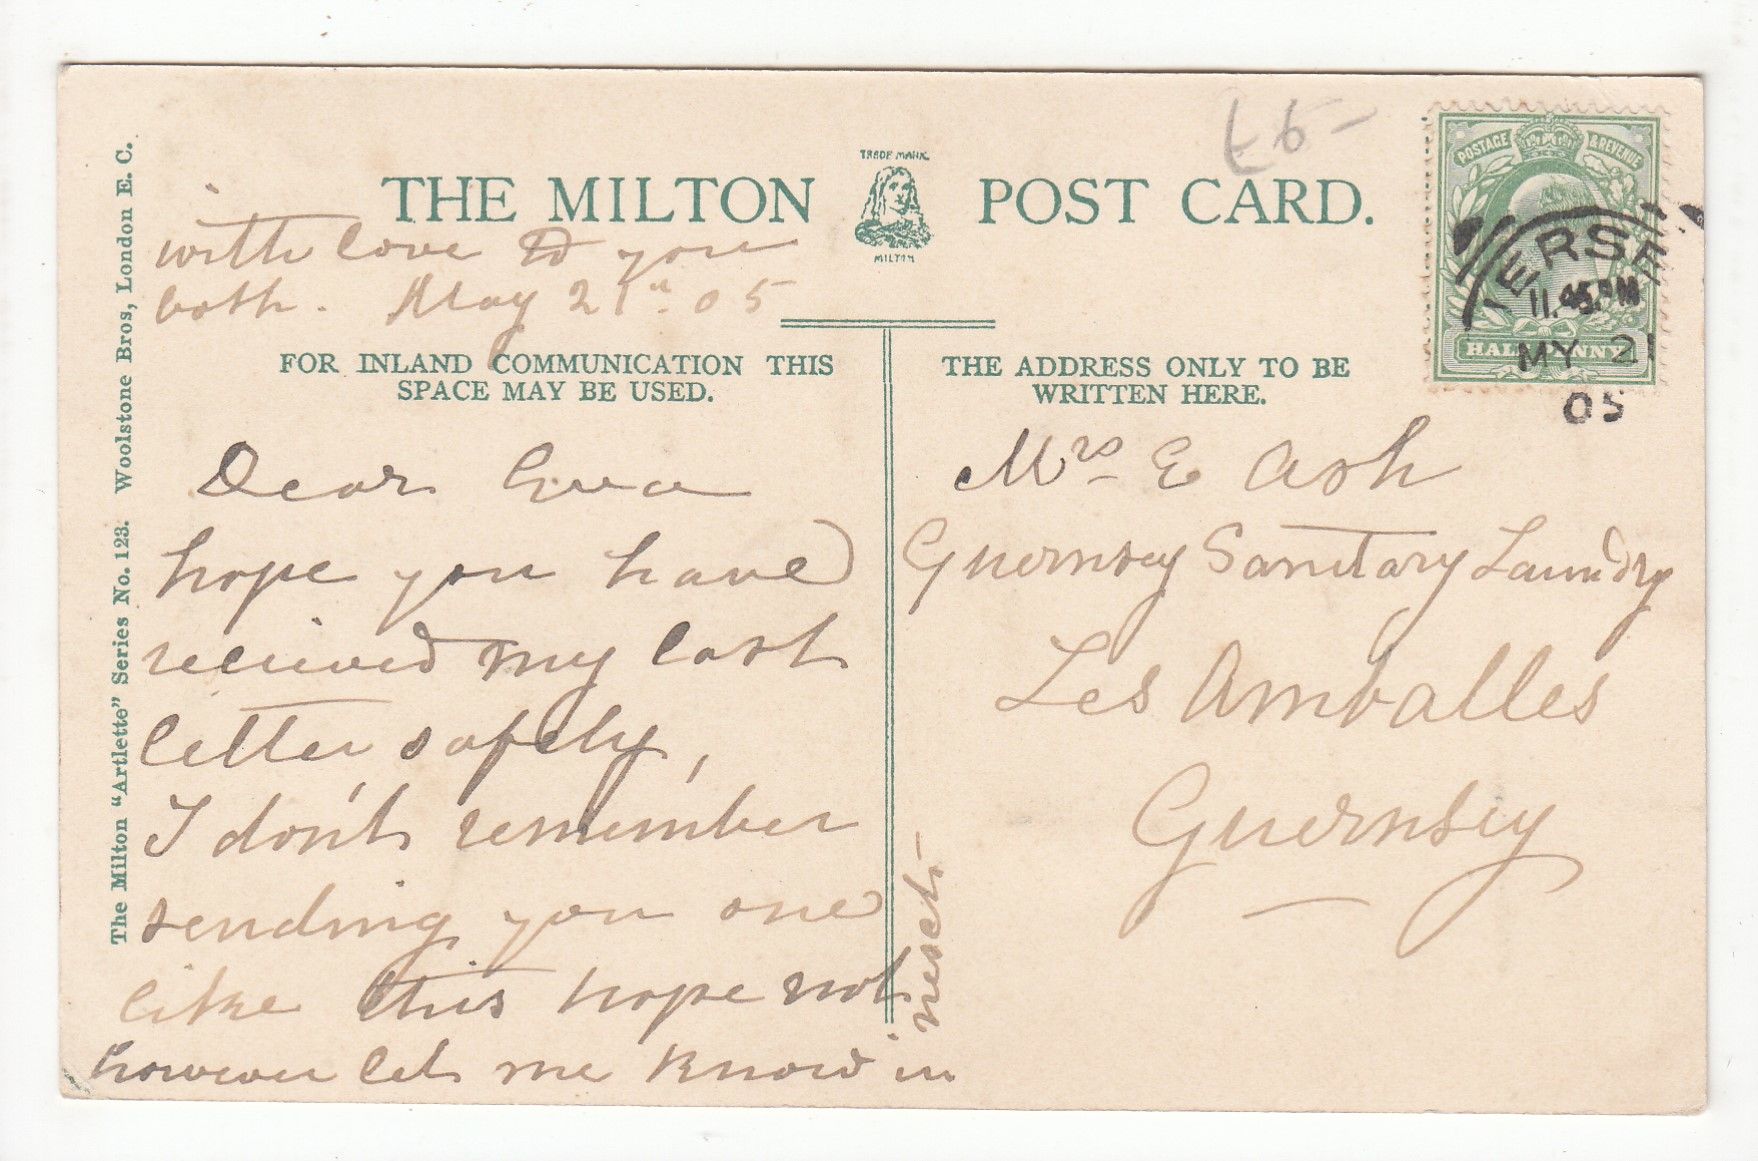 £6-
TRADE MARK
THE MILTON POST CARD.
MILTON
POSTAGE & REVENUE
HALFPENNY
JERSEY
11.45 PM
MY 21
05
FOR INLAND COMMUNICATION THIS
SPACE MAY BE USED.
THE ADDRESS ONLY TO BE
WRITTEN HERE.
Dear
hope you have
recieved my last
letter safely,
I don't remember
sending you one
like this hope not
however let me know in
next
with love to you
both. May 21st. 05
Mrs E Ash
Guernsey Sanitary Laundry
Les Amballes
Guernsey
The Milton "Artlette" Series No. 123. Woolstone Bros, London E. C.